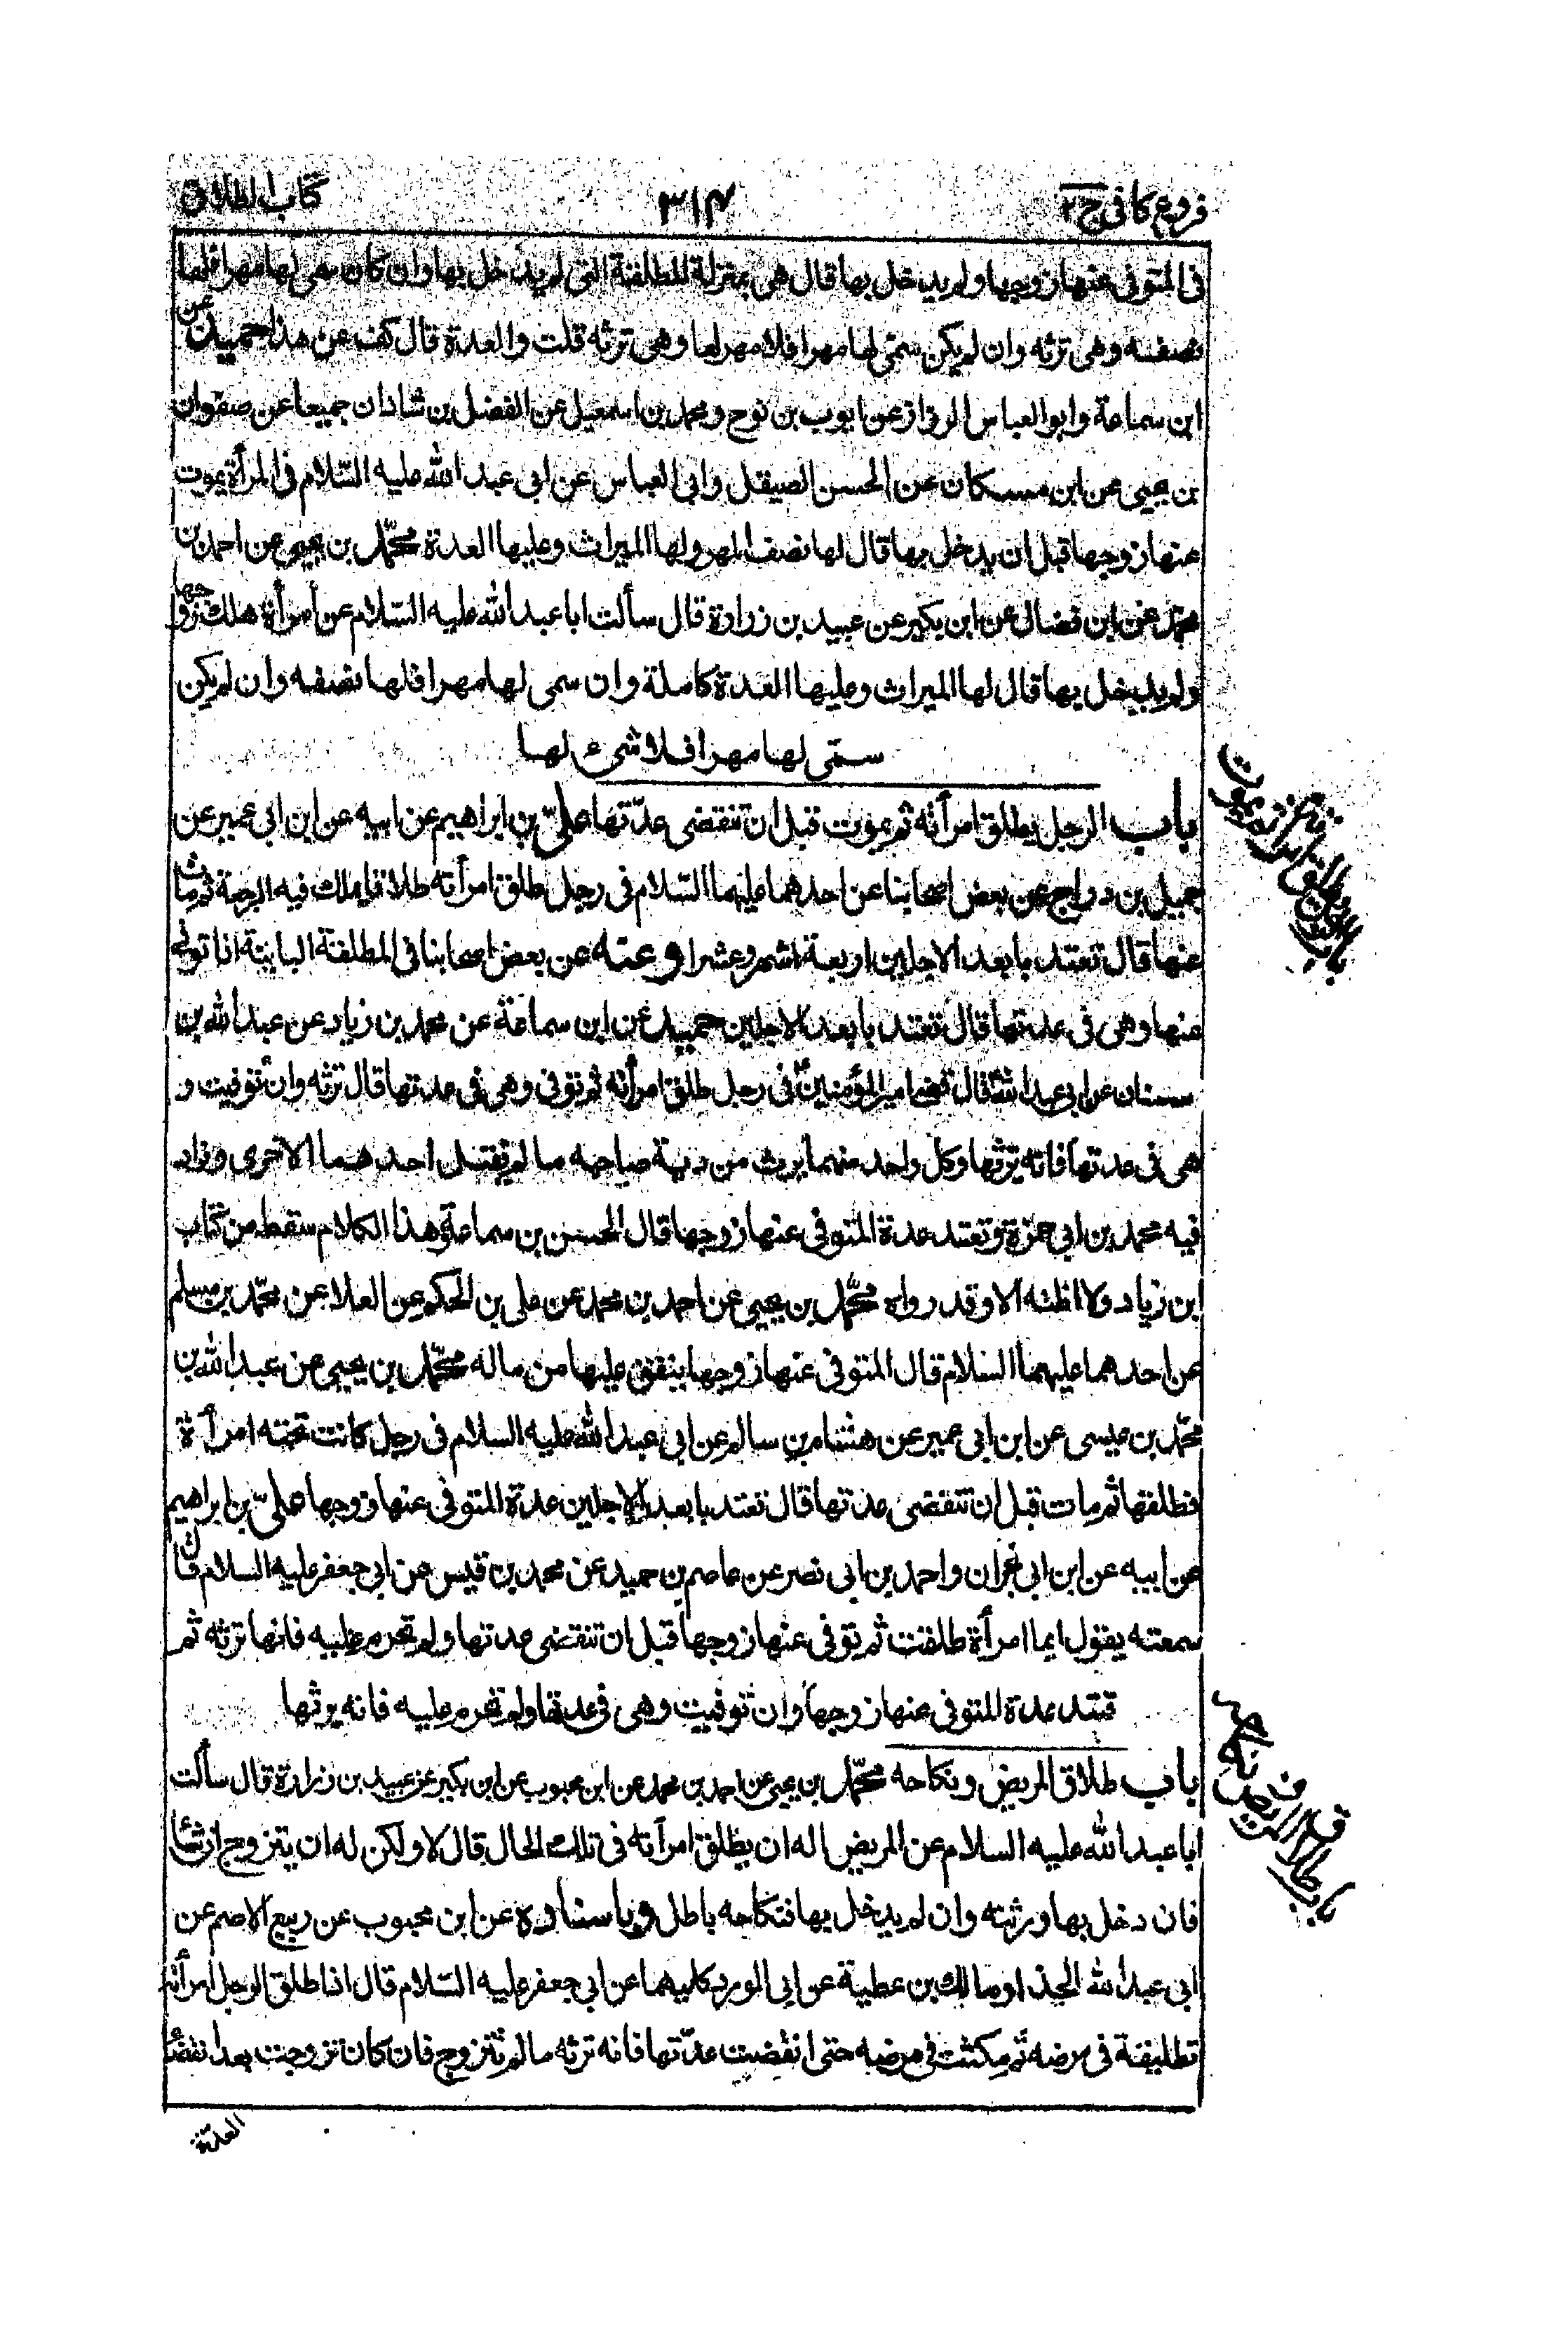 فروع كافى ج٢
٣١٤
كتاب الطلاق
فى المتوفى عنها زوجها ولم يدخل بها قال هى بمنزلة المطلقة التى لم يدخل بها وان كان سمى لها مهرا فلها
نصفه وهى ترثه وان لم يكن سمّى لها مهرا فلا مهر لها وهى ترثه قلت والعدة قال كف عن هذا حميد عن
ابن سماعة وابو العباس الرزاز عن ايوب بن نوح ومحمد بن اسمعيل عن الفضل بن شاذان جميعا عن صفوان
بن يحيى عن ابن مسكان عن الحسن الصيقل وابى العباس عن ابى عبد الله عليه السّلام فى المرأة يموت
عنها زوجها قبل ان يدخل بها قال لها نصف المهر ولها الميراث وعليها العدة محمّد بن يحيى عن احمد بن
محمّد عن ابن فضال عن ابن بكير عن عبيد بن زرارة قال سألت ابا عبد الله عليه السّلام عن امرأة هلك زوجها
ولم يدخل بها قال لها الميراث وعليها العدة كاملة وان سمى لها مهرا فلها نصفه وان لم يكن
سمّى لها مهرا فلا شىء لها
باب الرجل يطلق امرأته ثم يموت قبل ان تنقضى عدّتها علىّ بن ابراهيم عن ابيه عن ابن ابى عمير عن
جميل بن دراج عن بعض اصحابنا عن احدهما عليهما السّلام فى رجل طلق امرأته طلاقا يملك فيه الرجعة ثم مات
عنها قال تعتد بابعد الاجلين اربعة اشهر وعشرا وعنه عن بعض اصحابنا فى المطلقة البائنة اذا توفى
عنها وهى فى عدتها قال تعتد بابعد الاجلين حميد عن ابن سماعة عن محمد بن زياد عن عبد الله بن
سنان عن ابى عبد اللهؑ قال قضى امير المؤمنينؑ فى رجل طلق امرأته ثم توفى وهى فى عدتها قال ترثه وان توفيت و
هى فى عدتها فانه يرثها وكل واحد منهما يرث من دية صاحبه ما لم يقتل احدهما الاخرى وزاد
فيه محمد بن ابى حمزة وتعتد عدة المتوفى عنها زوجها قال الحسن بن سماعة وهذا الكلام سقط من كتاب
ابن زياد ولا اظنه الا وقد رواه محمّد بن يحيى عن احمد بن محمد عن على بن الحكم عن العلا عن محمّد بن مسلم
عن احدهما عليهما السلام قال المتوفى عنها زوجها ينفق عليها من ماله محمّد بن يحيى عن عبد الله بن
محمّد بن عيسى عن ابن ابى عمير عن هشام بن سالم عن ابى عبد الله عليه السلام فى رجل كانت تحته امرأة
فطلقها ثم مات قبل ان تنقضى عدتها قال تعتد بابعد الاجلين عدة المتوفى عنها زوجها علىّ بن ابراهيم
عن ابيه عن ابن ابى نجران واحمد بن ابى نصر عن عاصم بن حميد عن محمد بن قيس عن ابى جعفر عليه السلام قال
سمعته يقول ايما امرأة طلقت ثم توفى عنها زوجها قبل ان تنقضى عدتها ولم تحرم عليه فانها ترثه ثم
تعتد عدة المتوفى عنها زوجها وان توفيت وهى فى عدتها ولم تحرم عليه فانه يرثها
باب طلاق المريض ونكاحه محمّد بن يحيى عن احمد بن محمد عن ابن محبوب عن ابن بكير عن عبيد بن زرارة قال سألت
ابا عبد الله عليه السلام عن المريض اله ان يطلق امرأته فى تلك الحال قال لا ولكن له ان يتزوج ان شاء
فان دخل بها ورثته وان لم يدخل بها فنكاحه باطل وباسناده عن ابن محبوب عن ربيع الاصم عن
ابى عبد الله الحذاء ومالك بن عطية عن ابى الورد كليهما عن ابى جعفر عليه السّلام قال اذا طلق الرجل امرأته
تطليقة فى مرضه ثم مكثت فى مرضه حتى انقضيت عدّتها فانه ترثه ما لم تتزوج فان كان تزوجت بعد انقضاء
العدّة